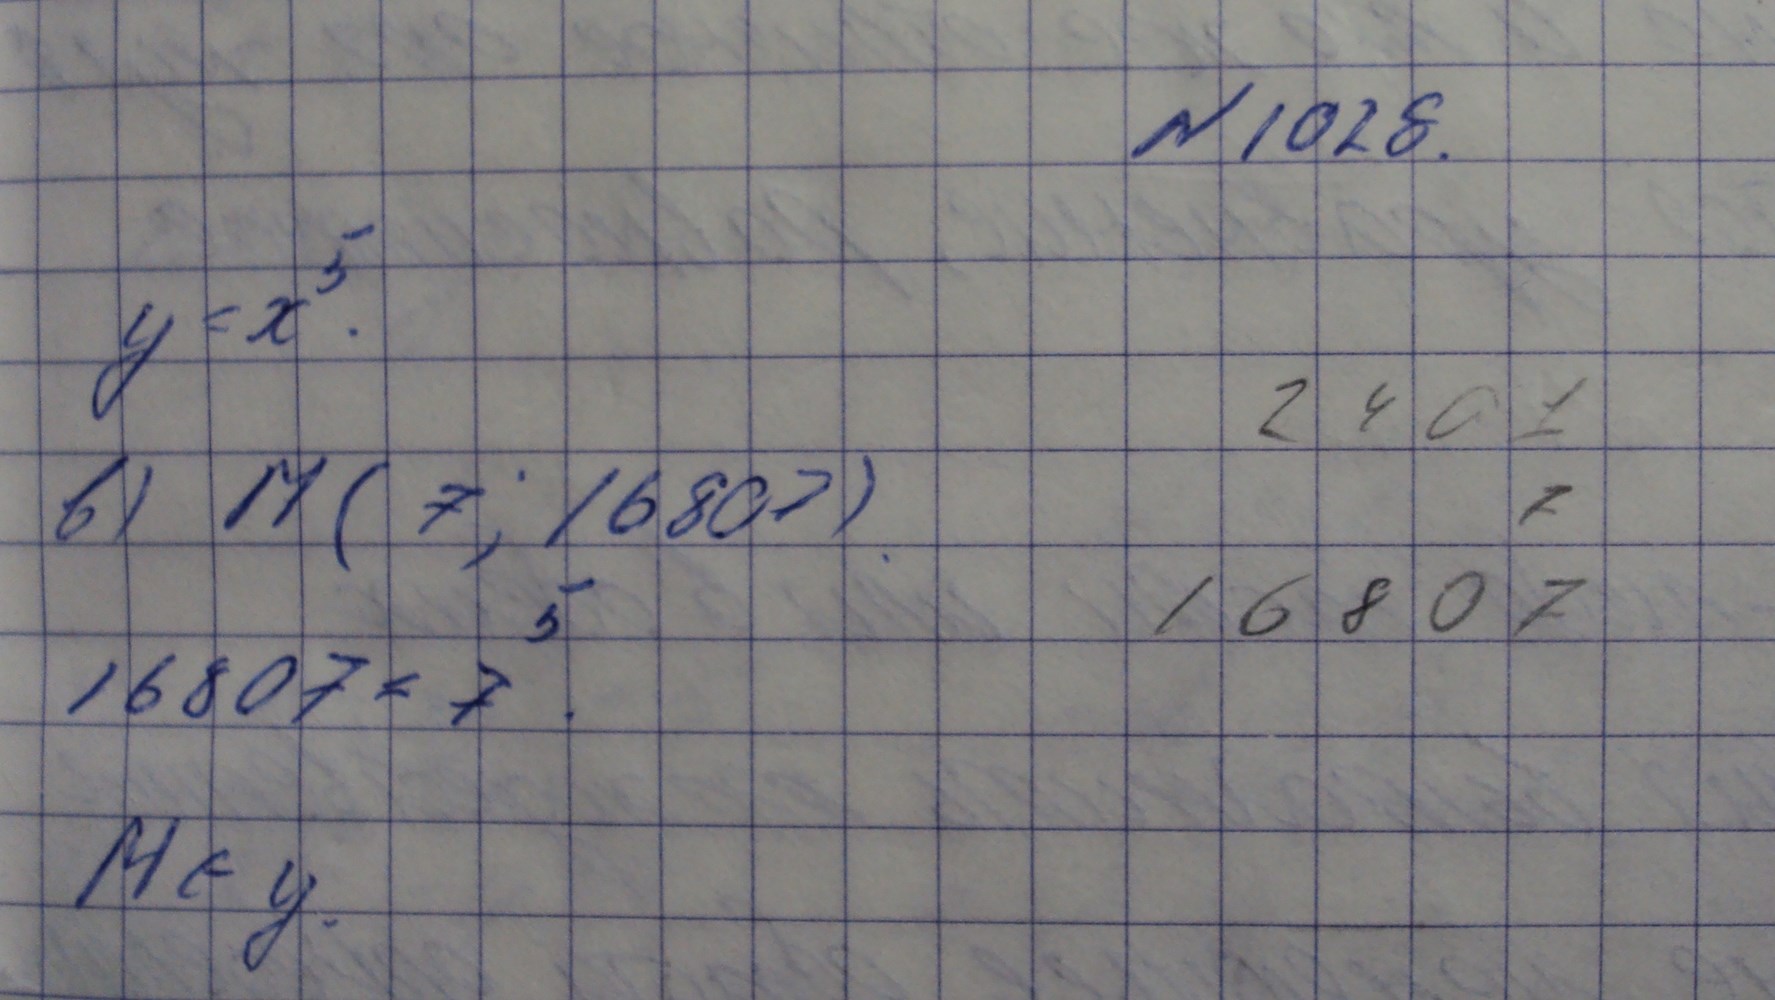 №1028.
y = x⁵.
в) М( 7; 16807).
16807 = 7⁵.
М ∈ y.
2401
7
16807